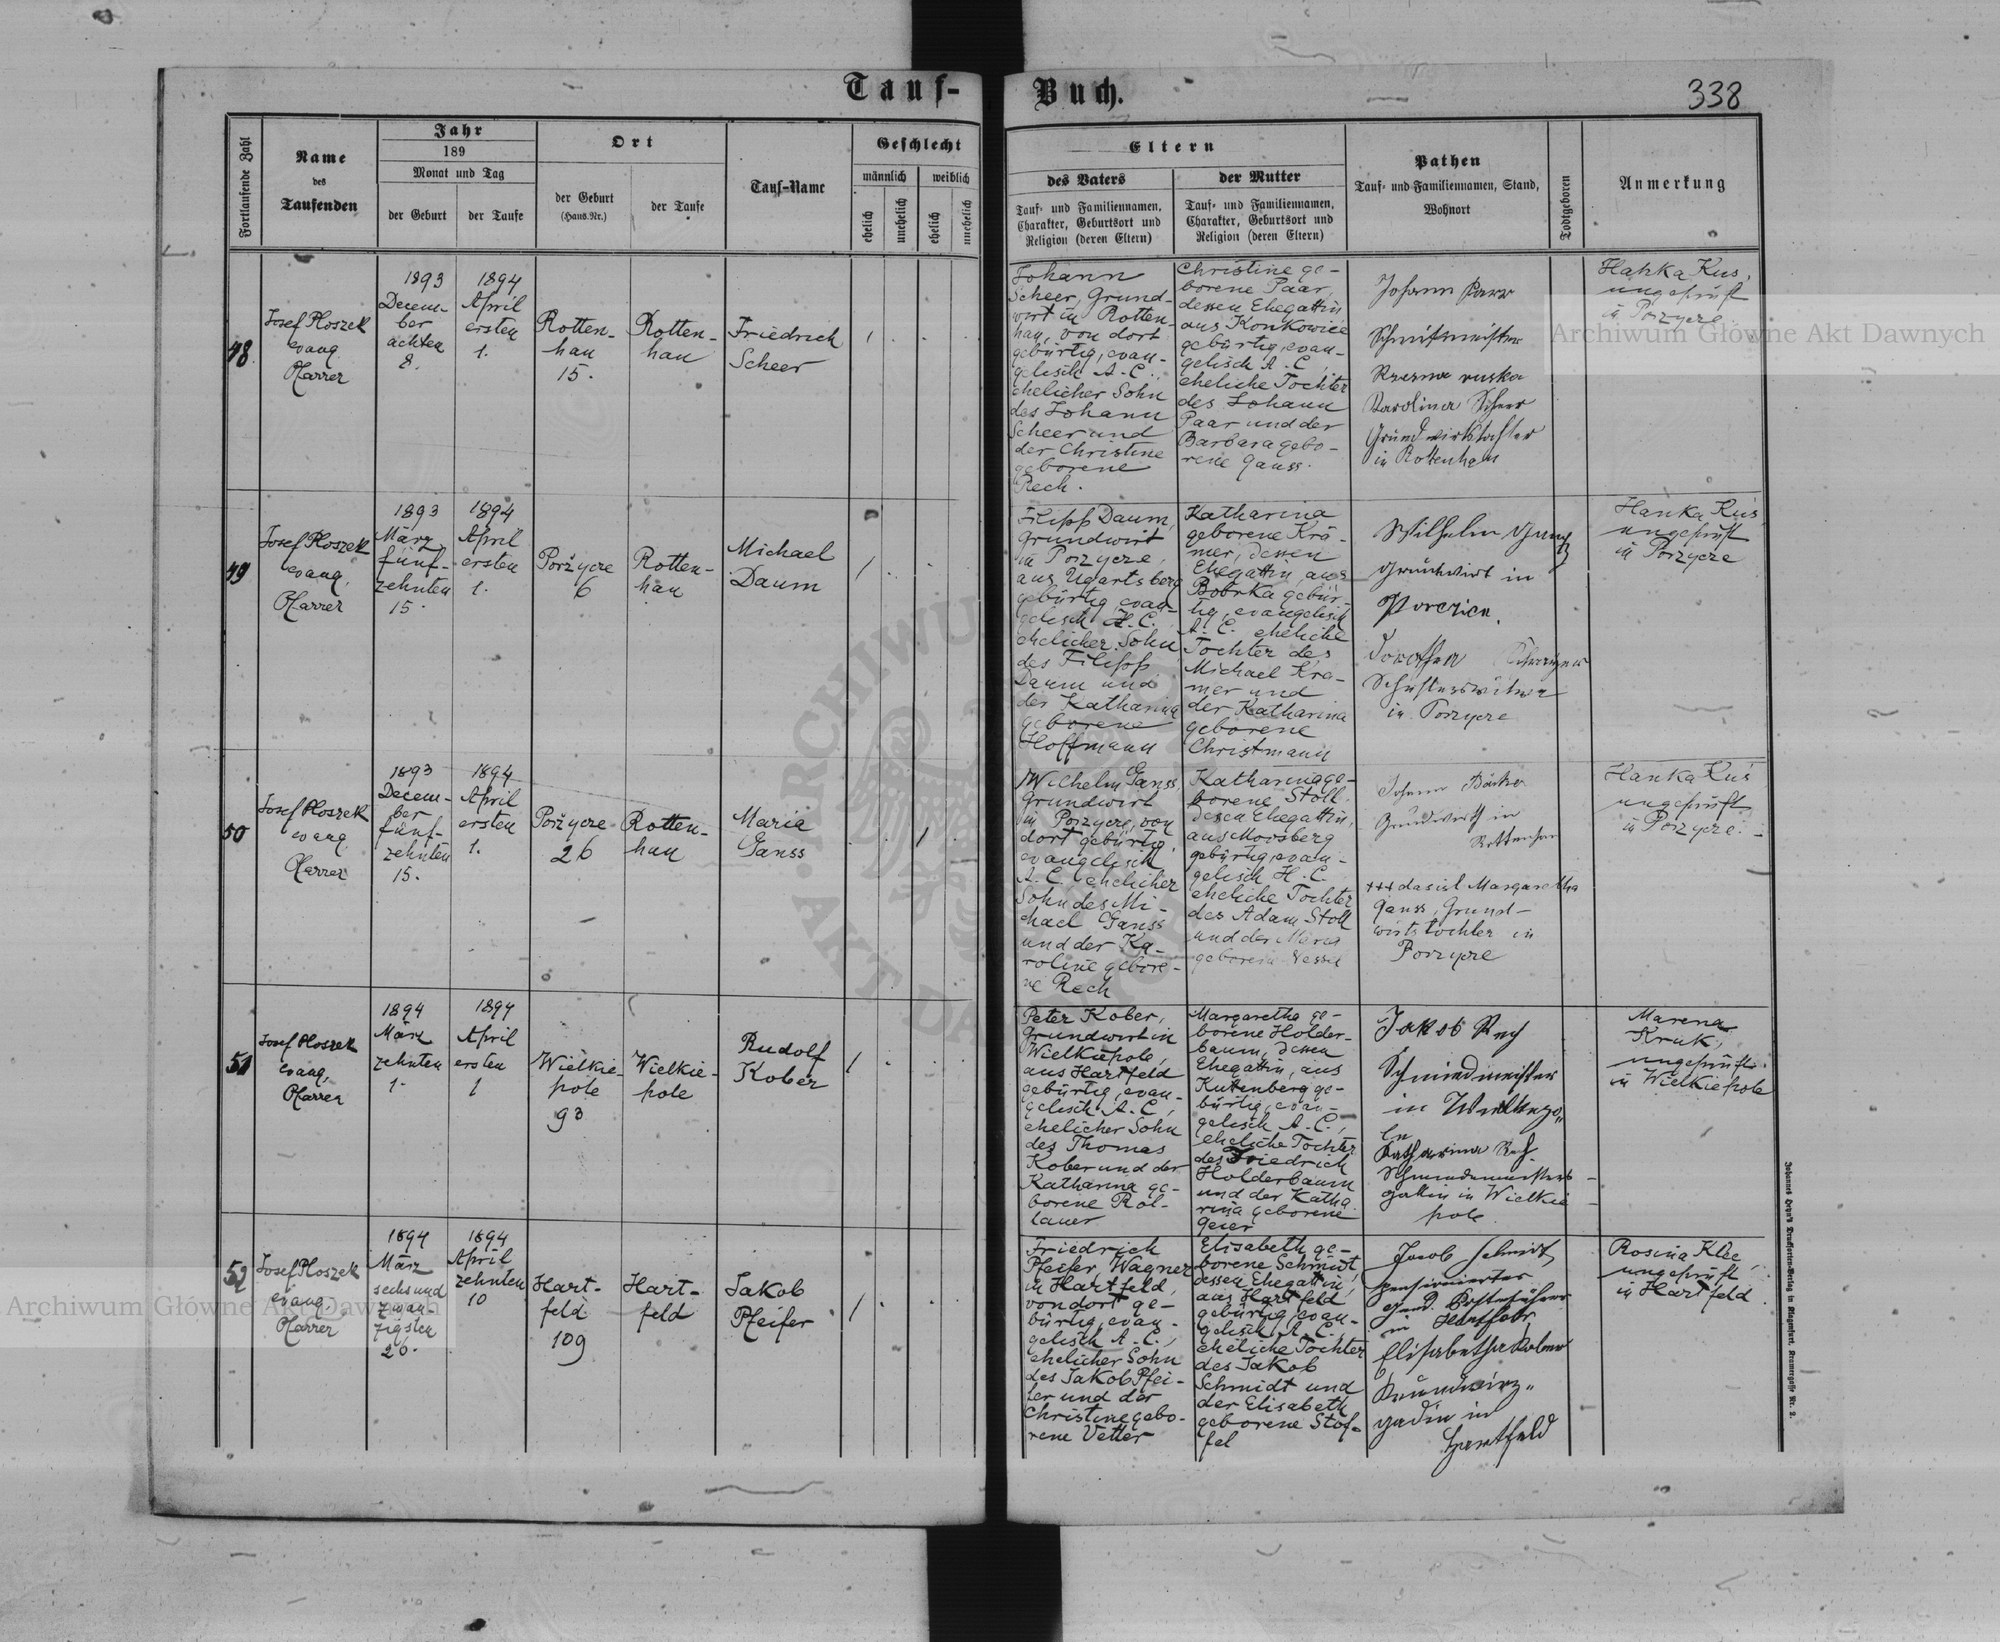 Tauf-
Buch.
338
Fortlaufende Zahl
Name
des
Taufenden
Jahr
189
Monat und Tag
der Geburt
der Taufe
Ort
der Geburt
(Haus.Nr.)
der Taufe
Tauf-Name
Geschlecht
männlich
weiblich
ehelich
unehelich
ehelich
unehelich
Eltern
des Vaters
Tauf- und Familiennamen,
Charakter, Geburtsort und
Religion (deren Eltern)
der Mutter
Tauf- und Familiennamen,
Charakter, Geburtsort und
Religion (deren Eltern)
Pathen
Tauf- und Familiennamen, Stand,
Wohnort
Todtgeboren
Anmerkung
48
Josef Ploszek
evang.
Pfarrer
1893
Decem-
ber
achten
8.
1894
April
ersten
1.
Rotten-
han
15.
Rotten-
han
Friedrich
Scheer
Johann
Scheer, Grund-
wirt in Rotten-
han, von dort
gebürtig, evan-
gelisch A.C.,
ehelicher Sohn
des Johann
Scheer und
der Christine
geborene
Rech.
Christine ge-
borene Paar,
dessen Ehegattin
aus Konkowice
gebürtig, evan-
gelisch A.C.,
eheliche Tochter
des Johann
Paar und der
Barbara gebo-
rene Ganss.
Johann Parr
Schmitmeister
Rzesna ruska
Karolina Scheer
in Rottenhan
Hanka Kus,
ungeprüft
in Porzycze
49
Josef Ploszek
evang.
Pfarrer
1893
März
fünf-
zehnten
15.
1894
April
ersten
1.
Poržycze
6
Rotten-
han
Michael
Daum
Filipp Daum,
Grundwirt
in Porzycze,
aus Ugartsberg
gebürtig, evan-
gelisch H.C.,
ehelicher Sohn
des Filipp
Daum und
der Katharina
geborene
Hoffmann
Katharina
geborene Krä-
mer, dessen
Ehegattin, aus
Bobrka gebür-
tig, evangelisch
A.C. eheliche
Tochter des
Michael Krä-
mer und
der Katharina
geborene
Christmann
Wilhelm
Grundwirt in
Porczice.
Dorothea
in Porzycze
Hanka Kus
ungeprüft
in Porzycze
50
Josef Ploszek
evang.
Pfarrer
1893
Decem-
ber
fünf-
zehnten
15.
1894
April
ersten
1.
Poržycze
26
Rotten-
han
Maria
Ganss
Wilhelm Ganss,
Grundwirt
in Porzycze, von
dort gebürtig,
evangelisch
A.C. ehelicher
Sohn des Mi-
chael Ganss
und der Ka-
roline gebore-
ne Rech
Katharina ge-
borene Stoll
dessen Ehegattin,
aus Moosberg
gebürtig, evan-
gelisch H.C.
eheliche Tochter
des Adam Stoll
und der Maria
geborene
Johann
Grundwirth in
Rottenhan
+++ das ist Margaretha
Ganss, Grund-
wirtstochter in
Porzycze
Hanka Kus
ungeprüft
in Porzycze.
51
Josef Ploszek
evang.
Pfarrer
1894
März
zehnten
1.
1894
April
ersten
1
Wielkie-
pole
93
Wielkie-
pole
Rudolf
Kober
Peter Kober,
Grundwirt in
Wielkiepole,
aus Hartfeld
gebürtig, evan-
gelisch A.C,
ehelicher Sohn
des Thomas
Kober und der
Katharina ge-
borene Rol-
lauer
Margaretha ge-
borene Holder-
baum, dessen
Ehegattin, aus
Kuttenberg ge-
bürtig, evan-
gelisch A.C.,
eheliche Tochter
des Friedrich
Holderbaum
und der Katha
rina geborene
Geier
Jakob Rech
Schmiedmeister
in
Katharina Rech
gattin in Wielkie
pole
Marena
Kruk,
ungeprüft
in Wielkiepole
52
Josef Ploszek
evang.
Pfarrer
1894
März
sechs und
zwan-
zigsten
26.
1894
April
zehnten
10
Hart-
feld
109
Hart-
feld
Jakob
Pfeifer
Friedrich
Pfeifer, Wagner
in Hartfeld,
von dort ge-
bürtig, evan-
gelisch A.C.,
ehelicher Sohn
des Jakob Pfei-
fer und der
Christine gebo-
rene Vetter
Elisabeth ge-
borene Schmidt,
dessen Ehegattin,
aus Hartfeld
gebürtig, evan-
gelisch A.C.,
eheliche Tochter
des Jakob
Schmidt und
der Elisabeth
geborene Stof-
fel
Jacob Schmidt,
pensionierter
in Hartfeld
Elisabetha Kober
Hartfeld
Rosina Klee,
ungeprüft
in Hartfeld
Johannes Heyn's Drucksorten-Verlag in Klagenfurt, Kramergasse Nr. 2.
Archiwum Główne Akt Dawnych
Archiwum Główne Akt Dawnych